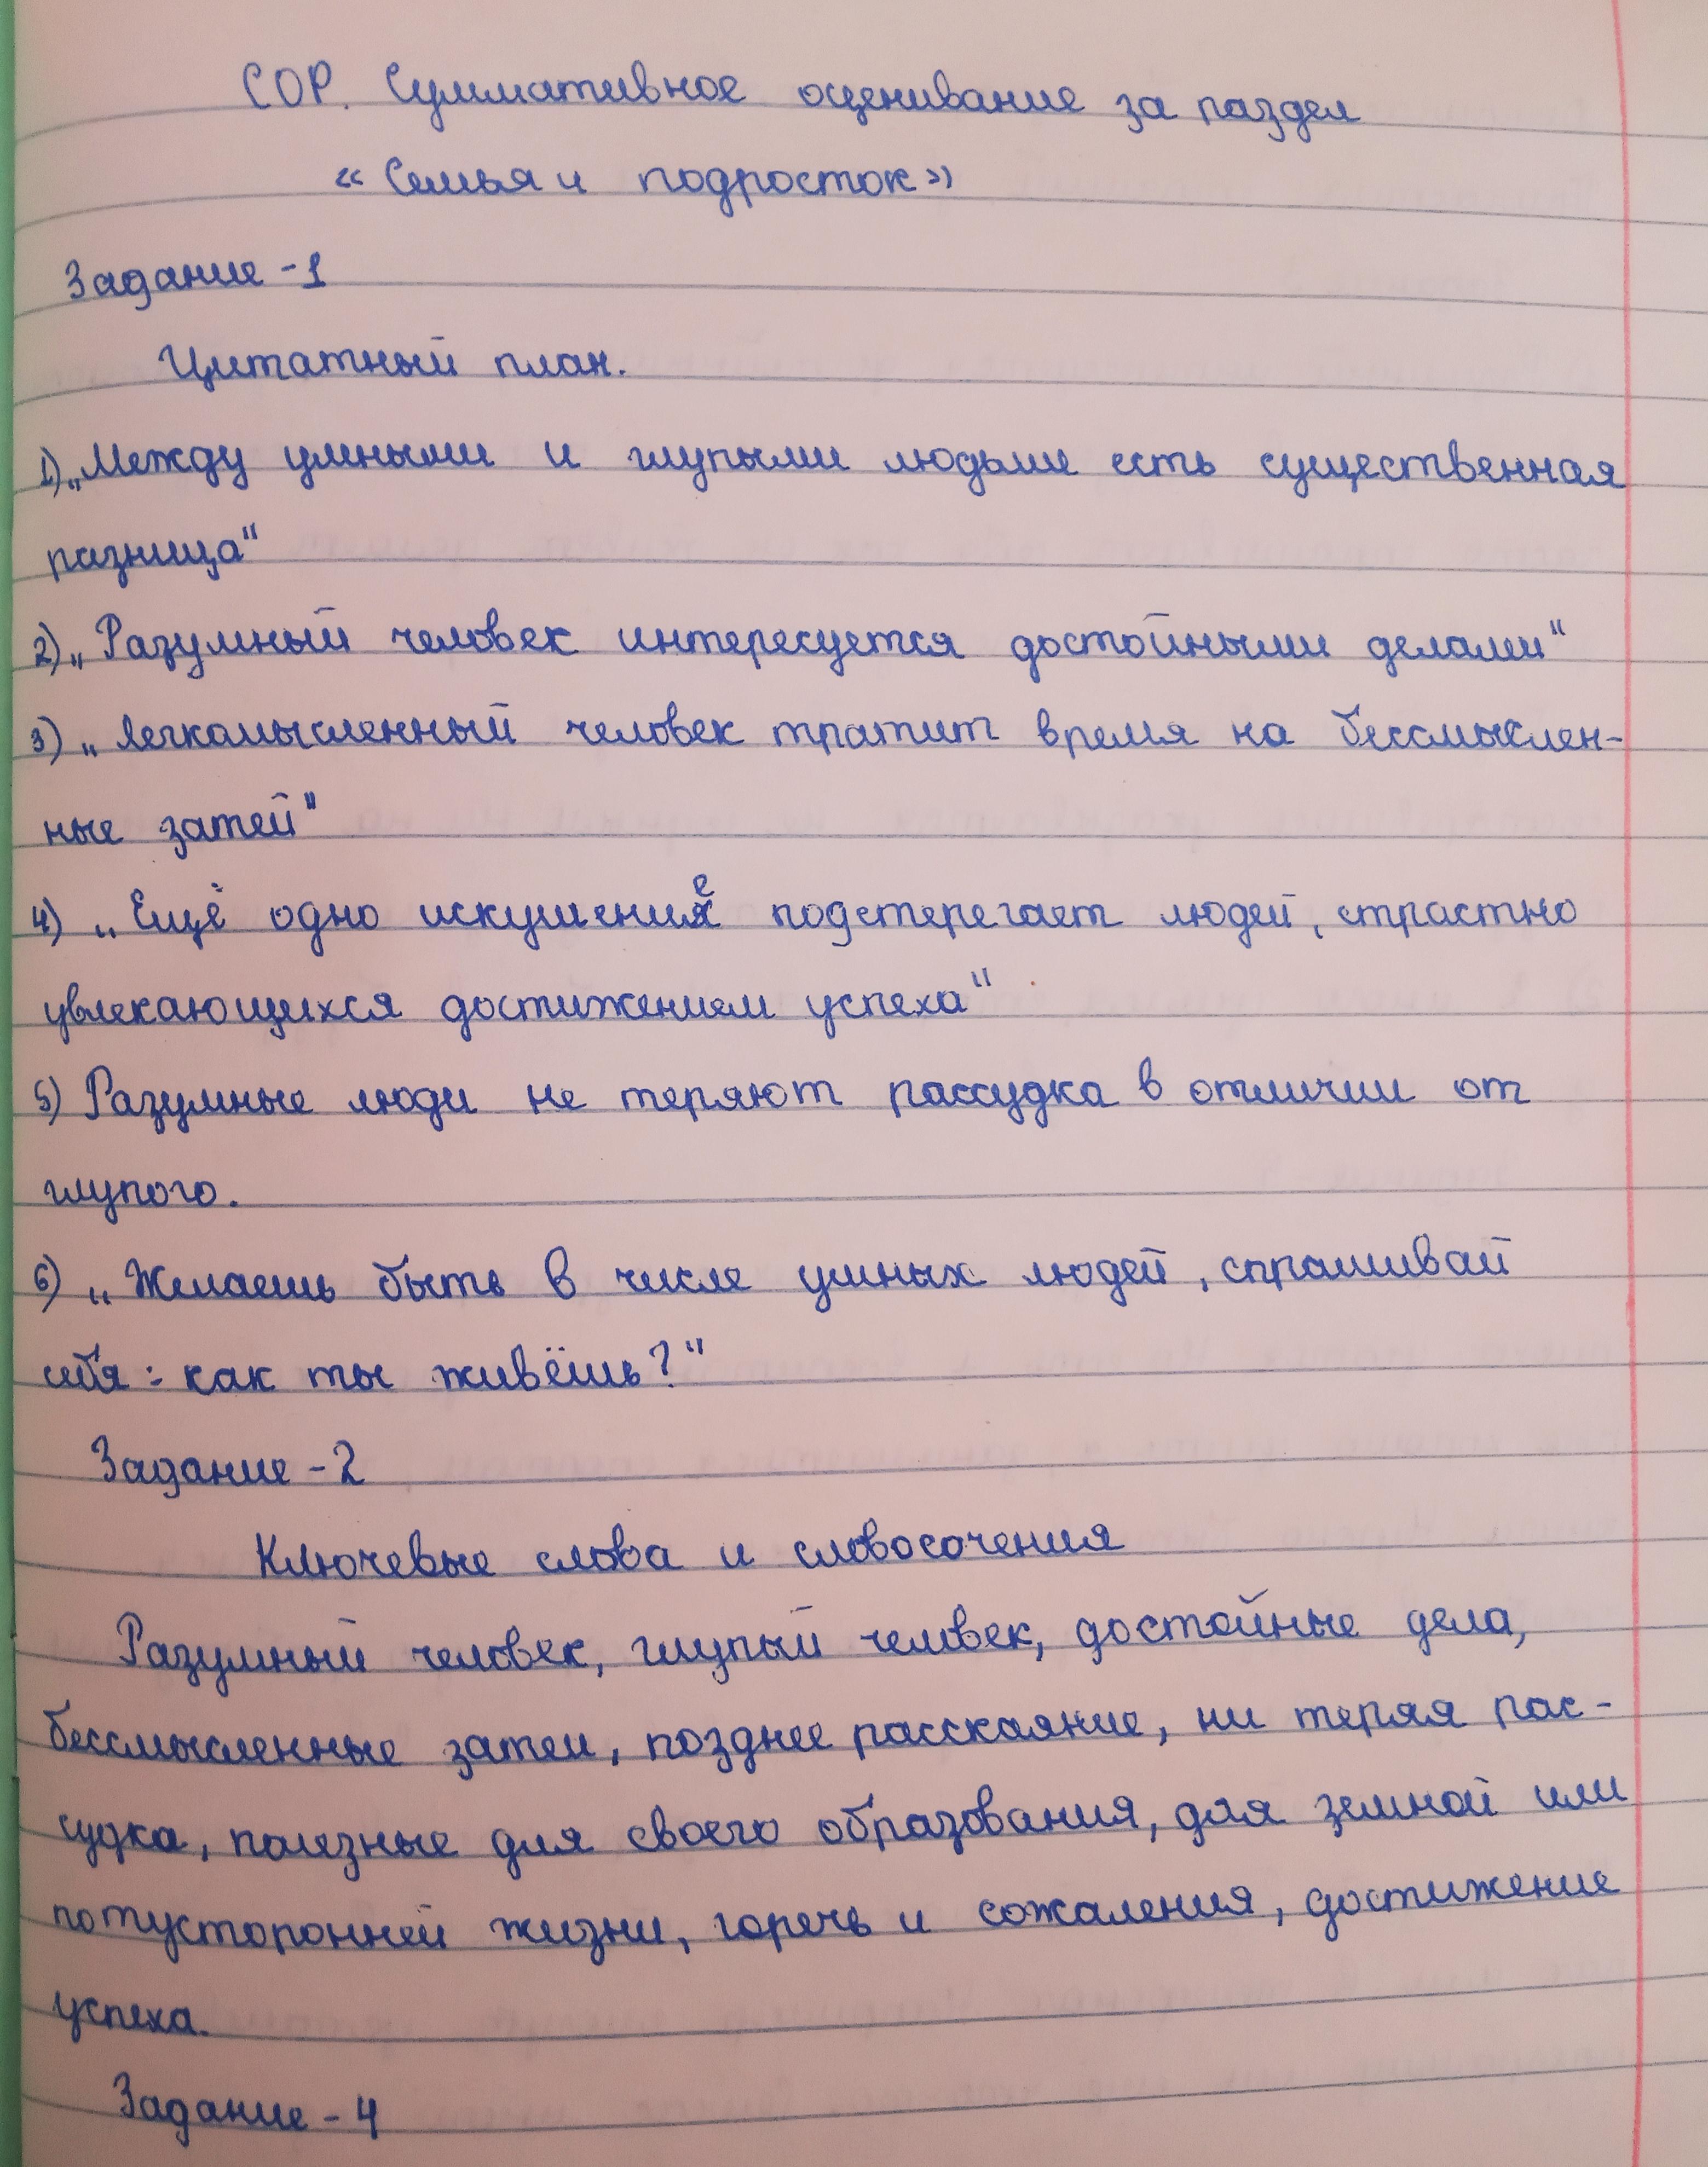 СОР. Суммативное оценивание за раздел
« Семья и подросток»
Задание -1
Цитатный план.
1) „Между умными и глупыми людьми есть существенная
разница“
2) „Разумный человек интересуется достойными делами“
3) „Легкомысленный человек тратит время на бессмыслен-
ные затей“
4) „Ещё одно искушение подстерегает людей, страстно
увлекающихся достижением успеха“
5) Разумные люди не теряют рассудка в отличии от
глупого.
6) „Желаешь быть в числе умных людей, спрашивай
себя: как ты живёшь?“
Задание -2
Ключевые слова и словосочения
Разумный человек, глупый человек, достойные дела,
бессмысленные затеи, позднее расскаяние, ни теряя рас-
судка, полезные для своего образования, для земной или
потусторонней жизни, горечь и сожаления, достижение
успеха.
Задание - 4